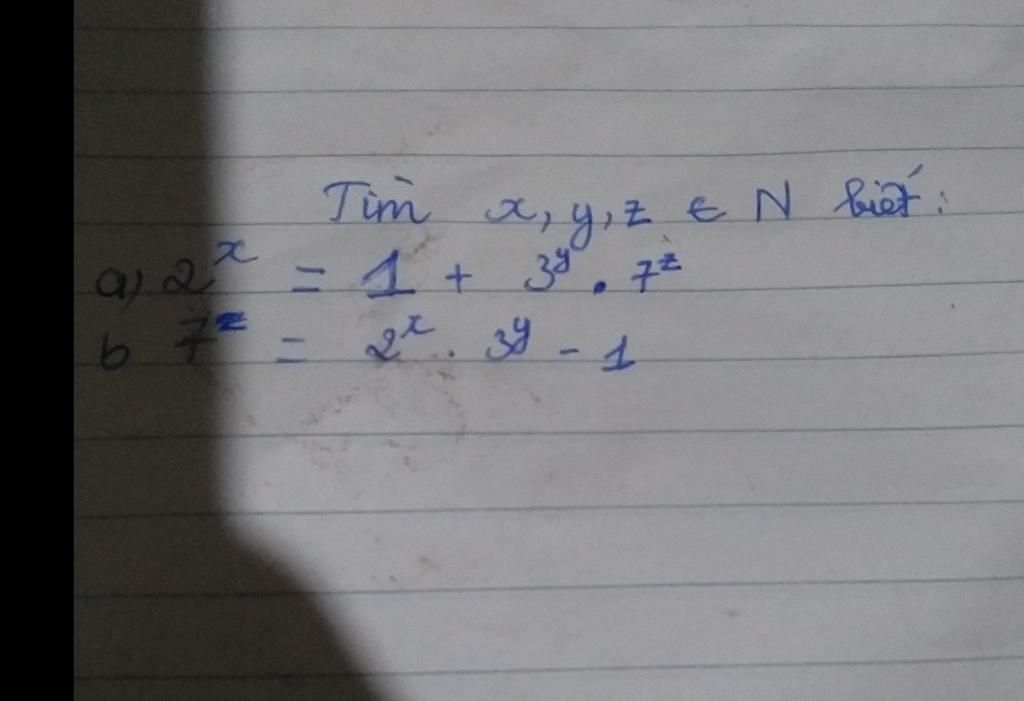 Tìm x, y, z ∈ N biết:
a) 2^x = 1 + 3^y . 7^z
b 7^z = 2^x . 3^y - 1